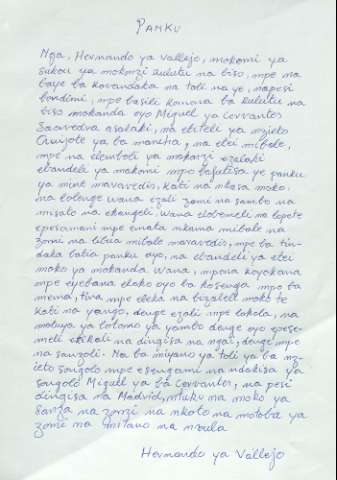 PANKU
Nga, Hernando ya Vallejo, mokomi ya
sukou ya mokonzi kulutu na biso, mpe na
baye ba kovandaka na toli na ye, napesi
bondimi, mpe basili komona ba kulutu na
biso mokanda oyo Miguel ya Cervantes
Saavedra asalaki, na etiteli ya mzieto
Quijote ya ba mancha, na etei mibale,
mpe na elemboli ya mokonzi ezalaki
ebandeli ya makomi mpo bafutisa ye panku
ya minei maravedis, kati na nkasa moko.
na lolenge wana ezali zomi na sambo na
misato na ekangeli. Wana elobemeli na lopete
epesamani mpe emata nkama mibale na
zomi na libwa mibale maravedis, mpe ba tin-
daka batia panku oyo, na ebandeli ya etei
moko ya mokanda wana, mpona koyokana
mpe eyebana eloko oyo ba kosenga mpo ba
mema, tina mpe eleka na bizaleli moko te
kati na yango, denge ezali mpe lokola, na
motuya ya lotomo ya yambo denge oyo epese-
meli etikali na dingisa na ngai, denge mpe
na sanzoli. Na ba miyano ya toli ya ba nz-
ieto songolo mpe esengami na ndakisa ya
songolo Miguel ya ba Cervantes, na pesi
dingisa na Madrid, ntuku na moko ya
sanza na zomi na nkoto na motoba ya
zomi na mitano na nvula
Hernando ya Vallejo